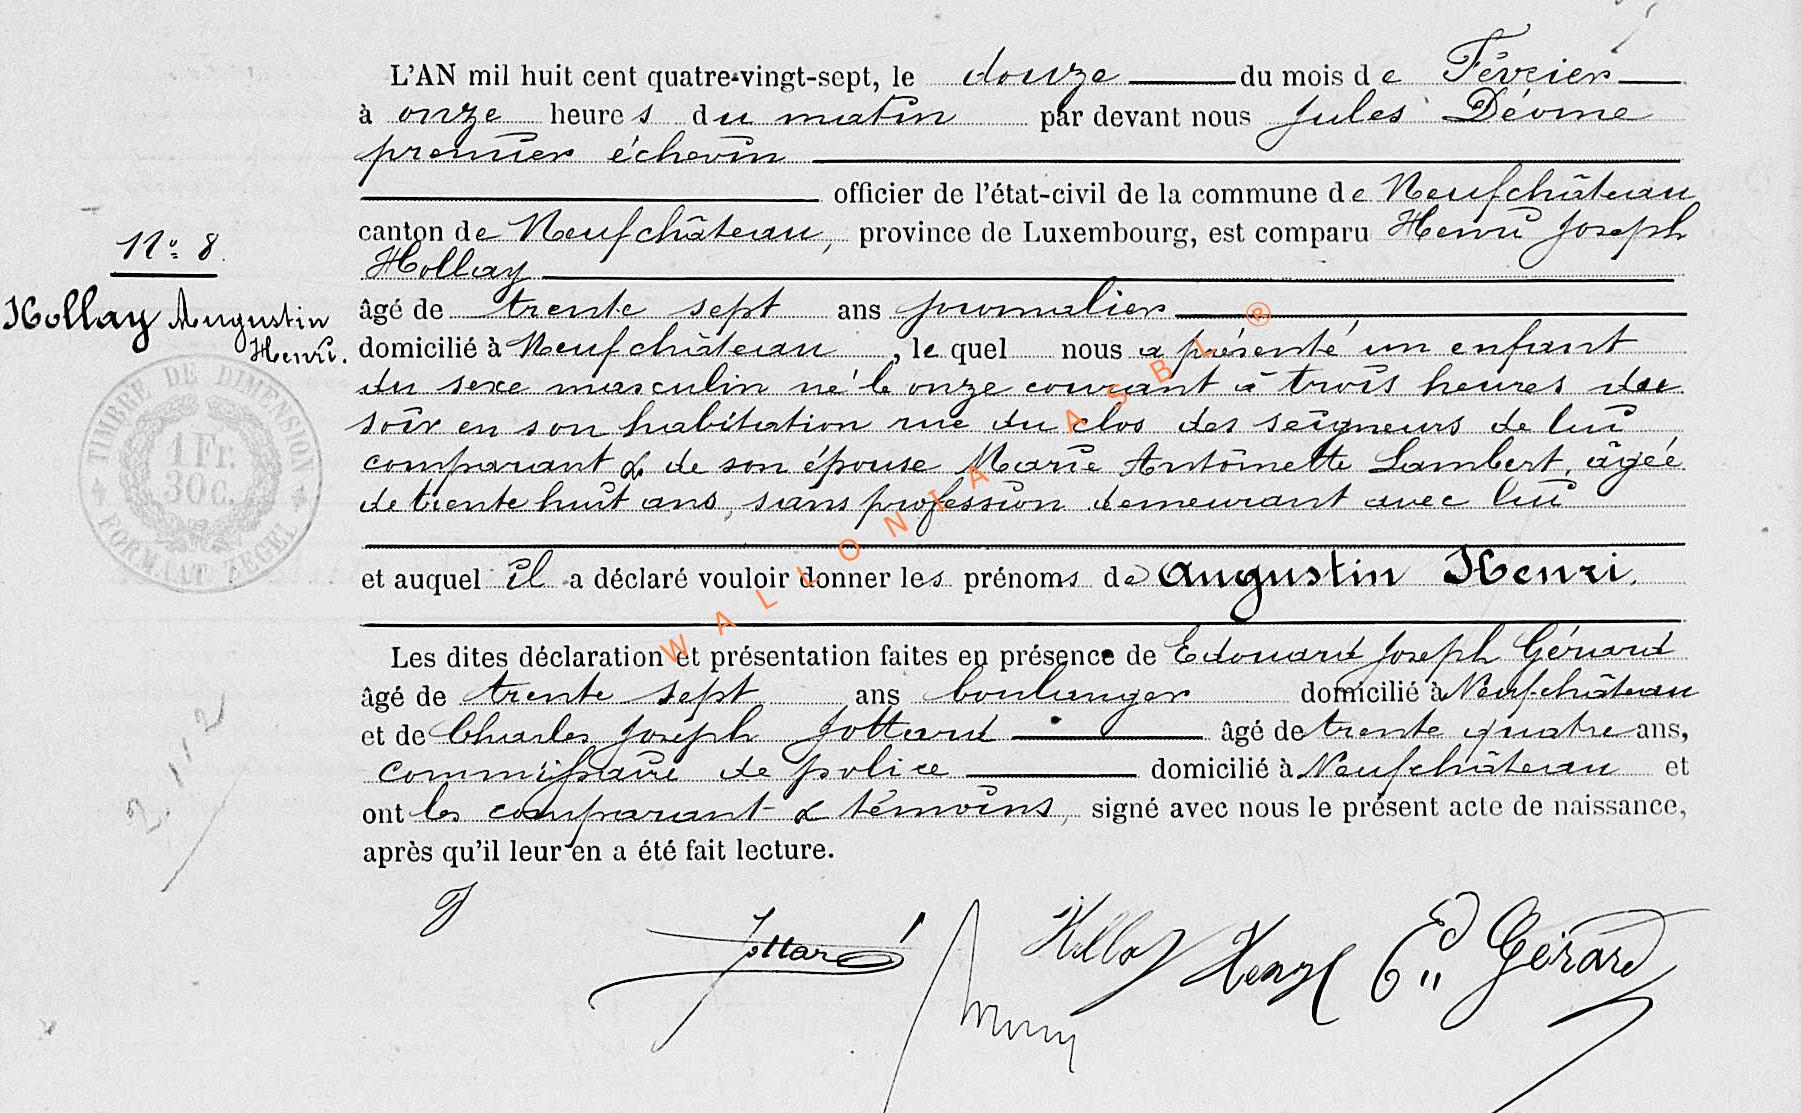 L'AN mil huit cent quatre-vingt-sept, le douze du mois de Février
à onze heures du matin par devant nous Jules Déome
premier échevin
officier de l'état-civil de la commune de Neufchâteau
canton de Neufchâteau, province de Luxembourg, est comparu Henri Joseph
Hollay
N° 8.
Hollay Augustin
Henri.
âgé de trente sept ans journalier
domicilié à Neufchâteau, le quel nous a présenté un enfant
du sexe masculin né le onze courant à trois heures du
soir en son habitation rue du clos des seigneurs de lui
comparant & de son épouse Marie Antoinette Lambert, âgée
de trente huit ans, sans profession demeurant avec lui
et auquel il a déclaré vouloir donner les prénoms de Augustin Henri.
Les dites déclaration et présentation faites en présence de Edouard Joseph Gérard
âgé de trente sept ans boulanger domicilié à Neufchâteau
et de Charles Joseph Jottard âgé de trente quatre ans,
commissaire de police domicilié à Neufchâteau et
ont les comparant & témoins, signé avec nous le présent acte de naissance,
après qu'il leur en a été fait lecture.
Jottard Hollay Henry Ed Gérard
TIMBRE DE DIMENSION
1 Fr.
30 C.
FORMAAT ZEGEL
WALLONIA ASBL ®